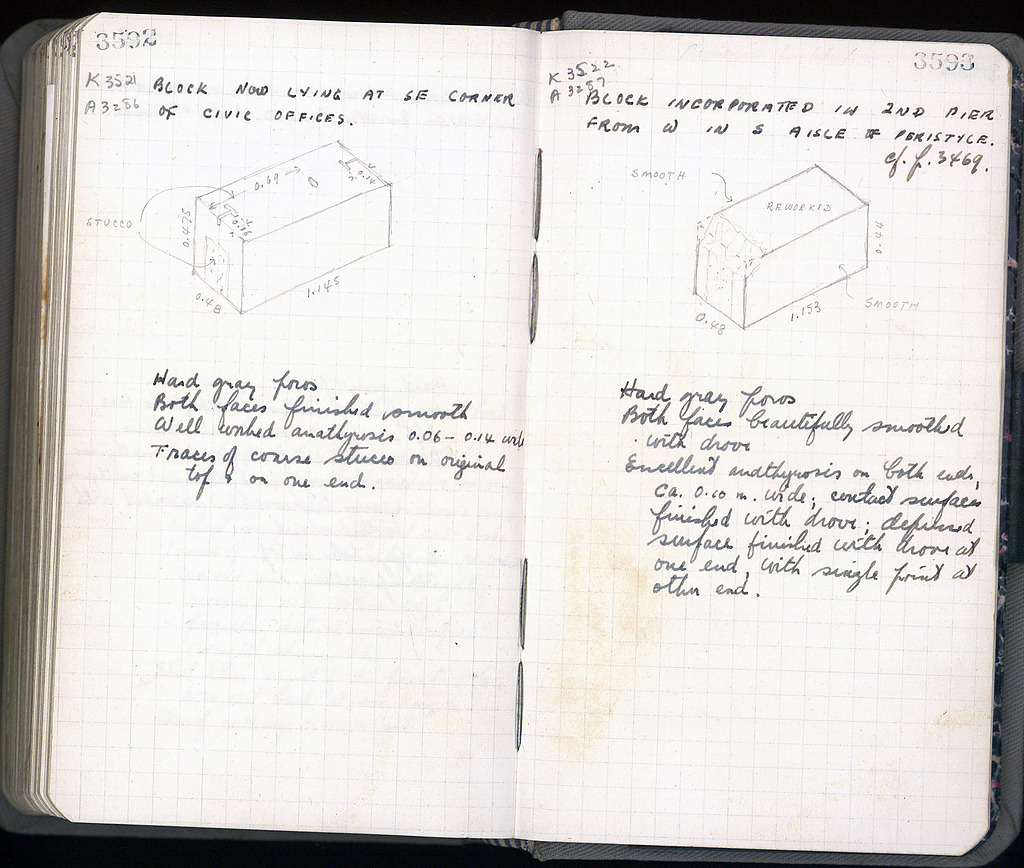 3592
K 3521
A 3286
BLOCK NOW LYING AT SE CORNER
OF CIVIC OFFICES.
0.69
0.14
0.16
STUCCO
0.475
0.48
1.145
Hard gray poros
Both faces finished smooth
Well worked anathyrosis 0.06 – 0.14 wide
Traces of coarse stucco on original
top & on one end.
3593
K 3522
A 3287
BLOCK INCORPORATED IN 2ND PIER
FROM W IN S AISLE OF PERISTYLE.
cf. p. 3469.
SMOOTH
REWORKED
0.44
0.48
1.153
SMOOTH
Hard gray poros
Both faces beautifully smoothed
with drove
Excellent anathyrosis on both ends,
ca. 0.10 m. wide; contact surfaces
finished with drove; depressed
surface finished with drove at
one end, with single point at
other end.